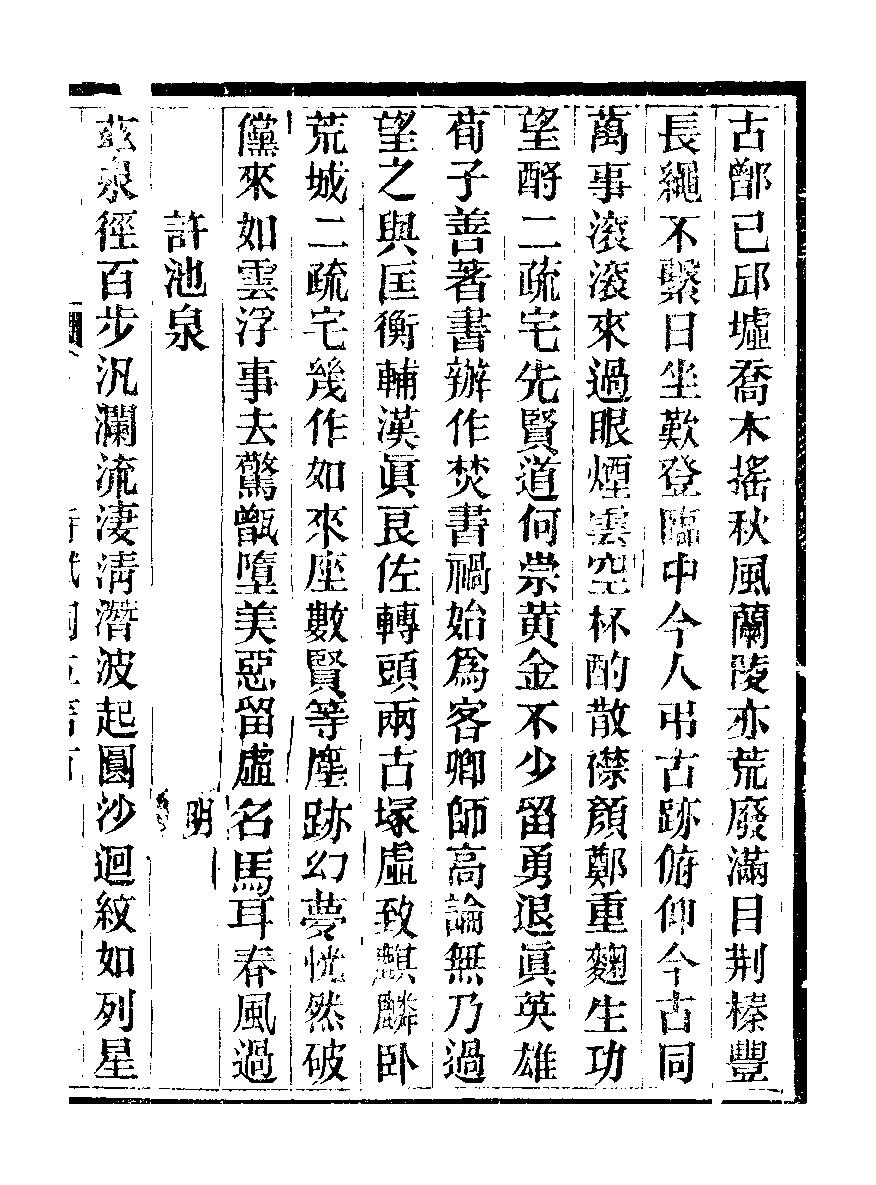 古鄫已邱墟喬木搖秋風蘭陵亦荒廢滿目荆榛豐
長繩不繫日坐歎登臨中今人弔古跡俯仰今古同
萬事滾滾來過眼煙雲空一杯酌散襟顏鄭重麴生功
望酹二疏宅先賢道何崇黃金不少留勇退眞英雄
荀子善著書辦作焚書禍始爲客卿師高論無乃過
望之與匡衡輔漢眞良佐轉頭兩古塚虛致麒麟臥
荒城二疏宅幾作如來座數賢等塵跡幻夢恍然破
儻來如雲浮事去驚甑墮美惡留虛名馬耳春風過
許池泉　明
茲泉徑百步汎瀾流淒淸潛波起圓沙迴紋如列星